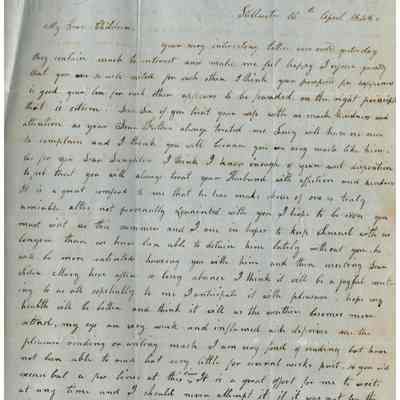 16th April 184
My Dear Children
your very interesting letters were recd yesterday
they contain much to interest and make me feel happy I rejoice greatly
that you are so well suited for each other I think your prospects for happiness
is good your love for each other appears to be founded on the right principle
that is esteem. Dear Son if you treat your wife with as much kindness and
attention as your Dear Father always treated me Lucy will have no occasion
to complain and I think you will because you are very much like him.
As for you Dear Daughter I think I know enough of your sweet disposition
to feel that you will always treat your Husband with affection and kindness
It is a great comfort to me that he has made choice of one so truly
amiable altho not personally acquainted with you I hope to be soon you
must visit us this summer and I am in hopes to keep Samuel with us
longer than we have been able to detain him lately without you he
will be more contented having you with him and then meeting Dear
Mary here after so long absence I think it will be a joyful meet-
ing to us all especially to me I anticipate it with pleasure. I hope my
health will be better and think it will as the weather becomes more
settled, my eyes are very weak and inflamed which deprives me the
pleasure reading or writing much I am very fond of reading but have
not been able to read but very little for several weeks past. So you will
excuse but a few lines at this time It is a great effort for me to write
at any time and I should never attempt it if it was not for the